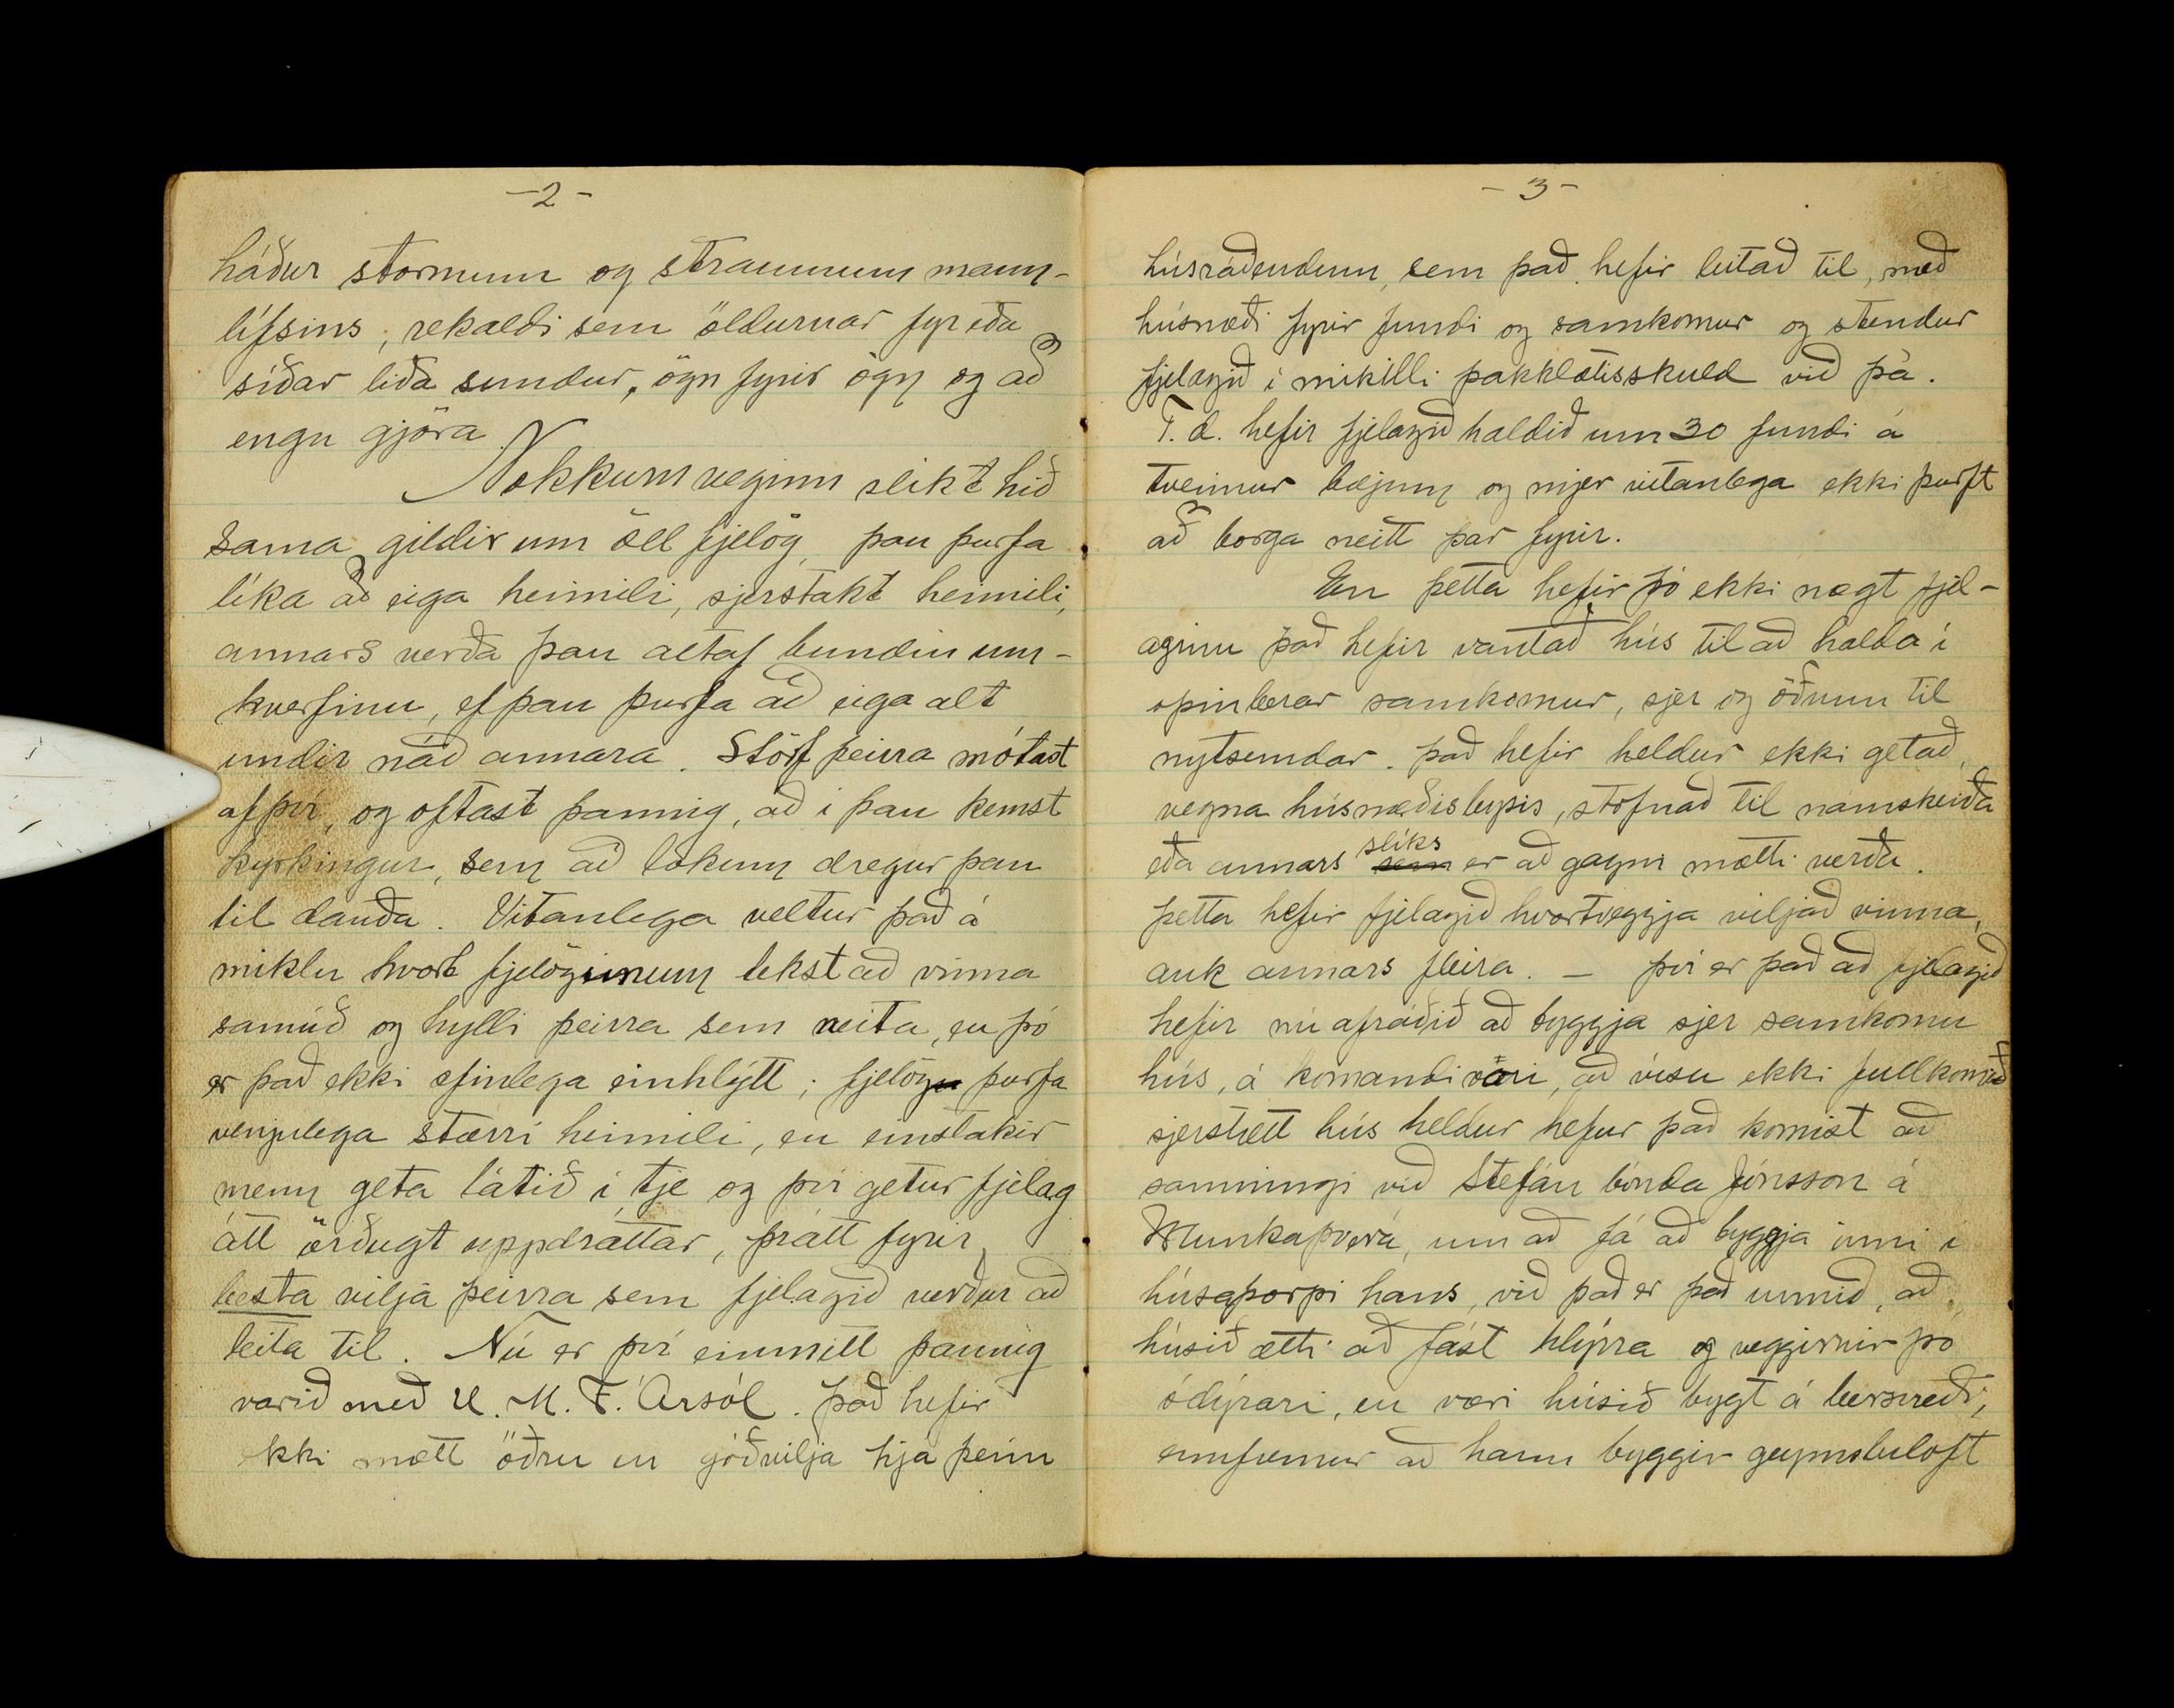 -2-
háður stormum og straumum mann-
lífsins, rekaldi sem öldurnar fyr eða
síðar liða sundur, ögn fyrir ögn og að
engu gjöra
Nokkurnveginn slikt hið
sama gildir um öll fjelög, þau þurfa
líka að eiga heimili, sjerstakt heimili,
annars verða þau altaf bundin um-
hverfinu, ef þau þurfa að eiga alt
undir náð annara. Störf þeirra mótast
af því, og oftast þannig, að i þau kemst
kyrkingur, sem að lokum dregur þau
til dauða. Vitanlega veltur það á
miklu hvort fjelögunum tekst að vinna
samúð og hylli þeirra sem veita, en þó
er það ekki æfinlega einhlýtt; fjelög þurfa
venjulega stærri heimili, en einstakir
menn geta látið i tje og því getur fjelag
átt örðugt uppdráttar, þrátt fyrir
besta vilja þeirra sem fjelagið verður að
leita til. Nú er því einmitt þannig
varið með U. M. F. Ársól. það hefir
ekki mætt öðru en góðvilja hjá þeim
-3-
húsráðendum, sem það hefir leitað til, með
húsnæði fyrir fundi og samkomur og stendur
fjelagið i mikilli þakklætisskuld við þá.
T.d. hefir fjelagið haldið um 30 fundi á
tveimur bæjum og mjer vitanlega ekki þurft
að borga neitt þar fyrir.
En þetta hefir þó ekki nægt fjel-
aginu það hefir vantað hús til að halda i
opinberar samkomur, sjer og öðrum til
nytsemdar. það hefir heldur ekki getað,
vegna húsnæðisleysis, stofnað til námskeiða
eða annars slíks er að gagni mætti verða.
þetta hefir fjelagið hvortveggja viljað vinna,
auk annars fleira. — því er það að fjelagið
hefir nú afráðið að byggja sjer samkomu
hús, á komandi vori, að vísu ekki fullkomið
sjerstætt hús heldur hefur það komist að
samningi við Stefán bónda Jónsson á
Munkaþverá, um að fá að byggja inni i
húsaþorpi hans, við það er það unnið, að
húsið ætti að fást hlýrra og veggirnir þó
ódýrari, en væri húsið bygt á bersvæði,
ennfremur að hann byggir geymsluloft